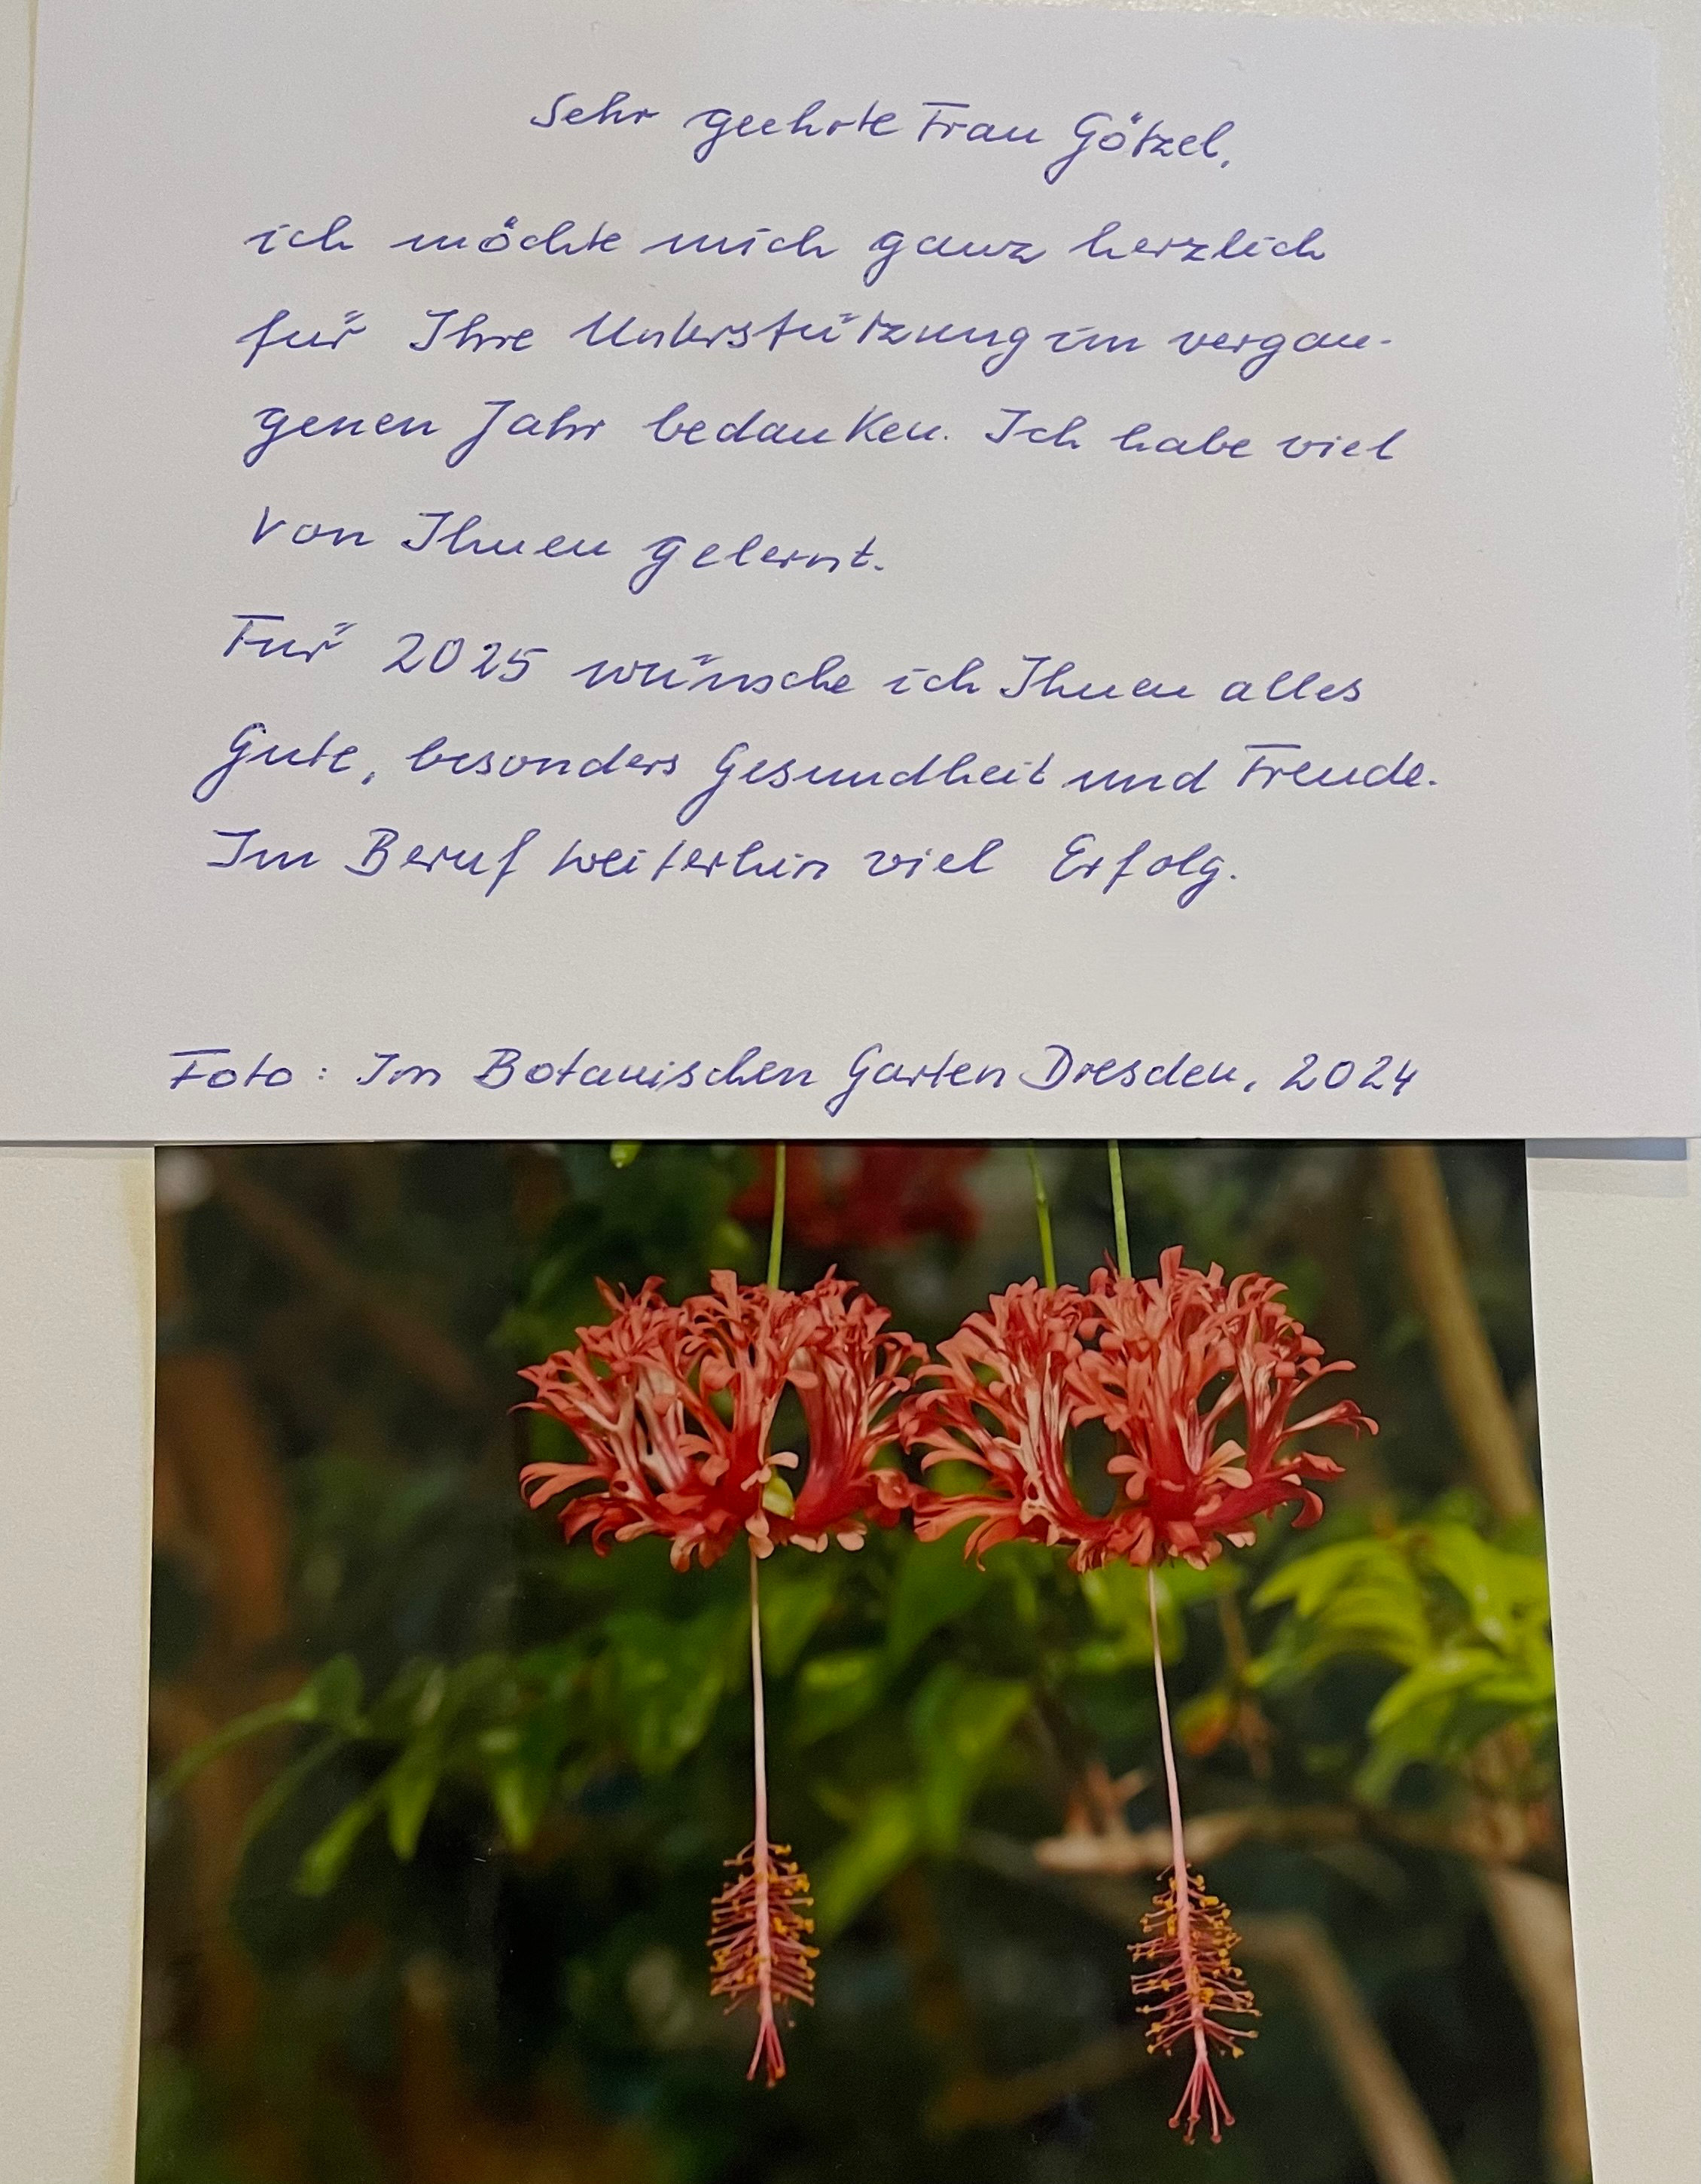 Sehr geehrte Frau Götzel,
ich möchte mich ganz herzlich
für Ihre Unterstützung im vergan-
genen Jahr bedanken. Ich habe viel
von Ihnen gelernt.
Für 2025 wünsche ich Ihnen alles
Gute, besonders Gesundheit und Freude.
Im Beruf weiterhin viel Erfolg.
Foto: Im Botanischen Garten Dresden, 2024